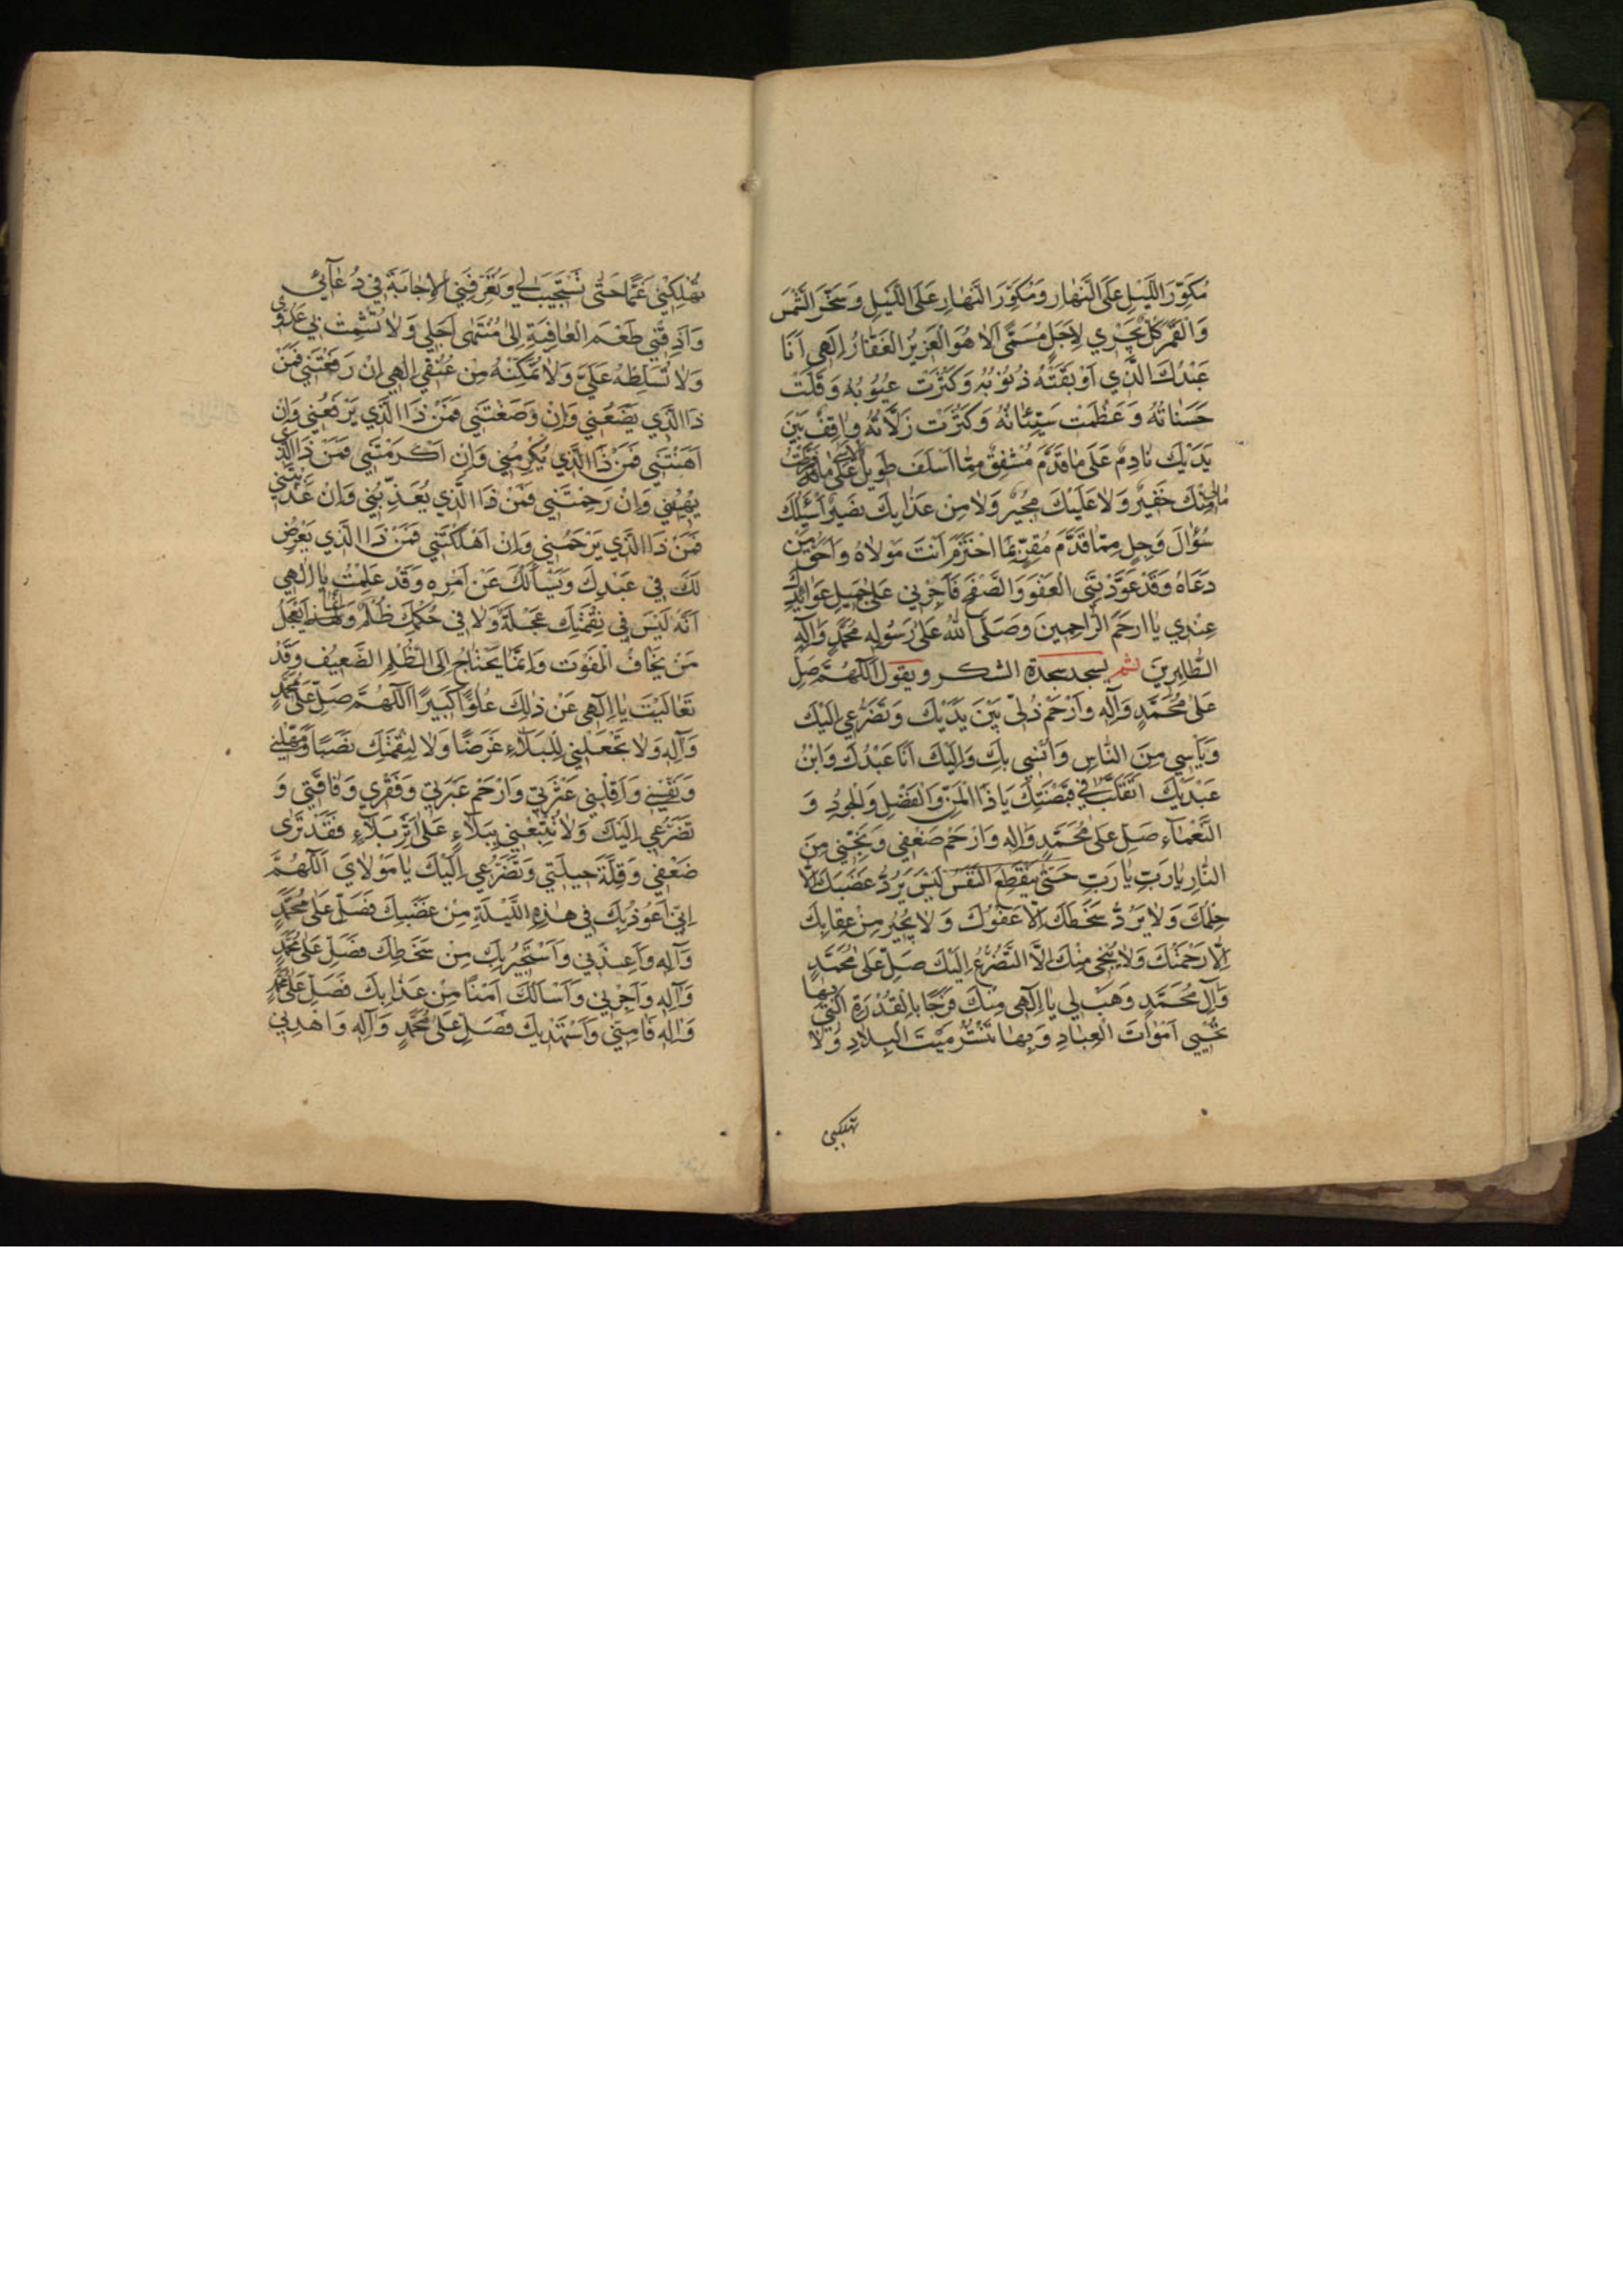 مُكَوِّرَ اللَّيْلِ عَلَى النَّهٰارِ وَمُكَوِّرَ النَّهٰارِ عَلَى اللَّيْلِ وَسَخَّرَ الشَّمْسَ
وَالْقَمَرَ كُلٌّ يَجْرِي لِاَجَلٍ مُسَمًّى اَلاٰ هُوَ الْعَزِيزُ الْغَفّٰارُ اِلٰهِي اَنَا
عَبْدُكَ الَّذِي اَوْبَقَتْهُ ذُنُوبُهُ وَكَثُرَتْ عُيُوبُهُ وَقَلَّتْ
حَسَنٰاتُهُ وَعَظُمَتْ سَيِّئٰاتُهُ وَكَثُرَتْ زَلّٰاتُهُ وٰاقِفٌ بَيْنَ
يَدَيْكَ نٰادِمٌ عَلٰى مٰا قَدَّمَ مُشْفِقٌ مِمّٰا اَسْلَفَ طَوِيلُ عَلٰى مٰا
مٰالِي مِنْكَ خَفِيرٌ وَلاٰ عَلَيْكَ مُجِيرٌ وَلاٰ مِنْ عَذٰابِكَ نَصِيرٌ اَسْئَلُكَ
سُؤٰالَ وَجِلٍ مِمّٰا قَدَّمَ مُقِرٍّ بِمَا اجْتَرَمَ اَنْتَ مَوْلاٰهُ وَاَحَقُّ مَنْ
دَعَاهُ وَقَدْ عَوَّدْتَنِي الْعَفْوَ وَالصَّفْحَ فَاَجْرِنِي عَلٰى جَمِيلِ عَوٰائِدِكَ
عِنْدِي يٰا اَرْحَمَ الرّٰاحِمِينَ وَصَلَّى اللّٰهُ عَلٰى رَسُولِهِ مُحَمَّدٍ وَآلِهِ
الطّٰاهِرِينَ ثم يسجد سجدة الشكر ويقول اَللّٰهُمَّ صَلِّ
عَلٰى مُحَمَّدٍ وَآلِهِ وَارْحَمْ ذُلِّي بَيْنَ يَدَيْكَ وَتَضَرُّعِي اِلَيْكَ
وَيَأْسِي مِنَ النّٰاسِ وَاُنْسِي بِكَ وَاِلَيْكَ اَنَا عَبْدُكَ وَابْنُ
عَبْدَيْكَ اَتَقَلَّبُ فِي قَبْضَتِكَ يٰا ذَا الْمَنِّ وَالْفَضْلِ وَالْجُودِ وَ
النَّعْمٰاءِ صَلِّ عَلٰى مُحَمَّدٍ وَآلِهِ وَارْحَمْ ضَعْفِي وَنَجِّنِي مِنَ
النّٰارِ يٰا رَبِّ يٰا رَبِّ حَتّٰى يَنْقَطِعَ النَّفَسُ لَيْسَ يَرُدُّ غَضَبَكَ اِلّٰا
حِلْمُكَ وَلاٰ يَرُدُّ سَخَطَكَ اِلّٰا عَفْوُكَ وَلاٰ يُجِيرُ مِنْ عِقٰابِكَ
اِلّٰا رَحْمَتُكَ وَلاٰ يُنْجِي مِنْكَ اِلَّا التَّضَرُّعُ اِلَيْكَ صَلِّ عَلٰى مُحَمَّدٍ
وَآلِ مُحَمَّدٍ وَهَبْ لِي يٰا اِلٰهِي مِنْكَ فَرَجًا بِالْقُدْرَةِ الَّتِي بِهٰا
تُحْيِي اَمْوٰاتَ الْعِبٰادِ وَبِهٰا تَنْشُرُ مَيْتَ الْبِلاٰدِ وَلاٰ
تهلكني
تُهْلِكْنِي غَمًّا حَتّٰى تَسْتَجِيبَ لِي وَتُعَرِّفَنِي الْاِجٰابَةَ فِي دُعٰآئِي
وَاَذِقْنِي طَعْمَ الْعٰافِيَةِ اِلٰى مُنْتَهٰى اَجَلِي وَلاٰ تُشْمِتْ بِي عَدُوِّي
وَلاٰ تُسَلِّطْهُ عَلَيَّ وَلاٰ تُمَكِّنْهُ مِنْ عُنُقِي اِلٰهِي اِنْ رَفَعْتَنِي فَمَنْ
ذَا الَّذِي يَضَعُنِي وَاِنْ وَضَعْتَنِي فَمَنْ ذَا الَّذِي يَرْفَعُنِي وَاِنْ
اَهَنْتَنِي فَمَنْ ذَا الَّذِي يُكْرِمُنِي وَاِنْ اَكْرَمْتَنِي فَمَنْ ذَا الَّذِي
يُهِينُنِي وَاِنْ رَحِمْتَنِي فَمَنْ ذَا الَّذِي يُعَذِّبُنِي وَاِنْ عَذَّبْتَنِي
فَمَنْ ذَا الَّذِي يَرْحَمُنِي وَاِنْ اَهْلَكْتَنِي فَمَنْ ذَا الَّذِي يَعْرِضُ
لَكَ فِي عَبْدِكَ وَيَسْأَلُكَ عَنْ اَمْرِهِ وَقَدْ عَلِمْتُ يٰا اِلٰهِي
اَنَّهُ لَيْسَ فِي نِقْمَتِكَ عَجَلَةٌ وَلاٰ فِي حُكْمِكَ ظُلْمٌ وَاِنَّمٰا يَعْجَلُ
مَنْ يَخٰافُ الْفَوْتَ وَاِنَّمٰا يَحْتٰاجُ اِلَى الظُّلْمِ الضَّعِيفُ وَقَدْ
تَعٰالَيْتَ يٰا اِلٰهِي عَنْ ذٰلِكَ عُلُوًّا كَبِيرًا اَللّٰهُمَّ صَلِّ عَلٰى مُحَمَّدٍ
وَآلِهِ وَلاٰ تَجْعَلْنِي لِلْبَلاٰءِ غَرَضًا وَلاٰ لِنِقْمَتِكَ نَصَبًا وَمَهِّلْنِي
وَنَفِّسْنِي وَاَقِلْنِي عَثْرَتِي وَارْحَمْ عَبْرَتِي وَفَقْرِي وَفٰاقَتِي وَ
تَضَرُّعِي اِلَيْكَ وَلاٰ تُتْبِعْنِي بِبَلاٰءٍ عَلٰى اَثَرِ بَلاٰءٍ فَقَدْ تَرٰى
ضَعْفِي وَقِلَّةَ حِيلَتِي وَتَضَرُّعِي اِلَيْكَ يٰا مَوْلاٰيَ اَللّٰهُمَّ
اِنِّي اَعُوذُ بِكَ فِي هٰذِهِ اللَّيْلَةِ مِنْ غَضَبِكَ فَصَلِّ عَلٰى مُحَمَّدٍ
وَآلِهِ وَاَعِذْنِي وَاَسْتَجِيرُ بِكَ مِنْ سَخَطِكَ فَصَلِّ عَلٰى مُحَمَّدٍ
وَآلِهِ وَاَجِرْنِي وَاَسْاَلُكَ اَمْنًا مِنْ عَذٰابِكَ فَصَلِّ عَلٰى مُحَمَّدٍ
وَآلِهِ فَاٰمِنِّي وَاَسْتَهْدِيكَ فَصَلِّ عَلٰى مُحَمَّدٍ وَآلِهِ وَاهْدِنِي